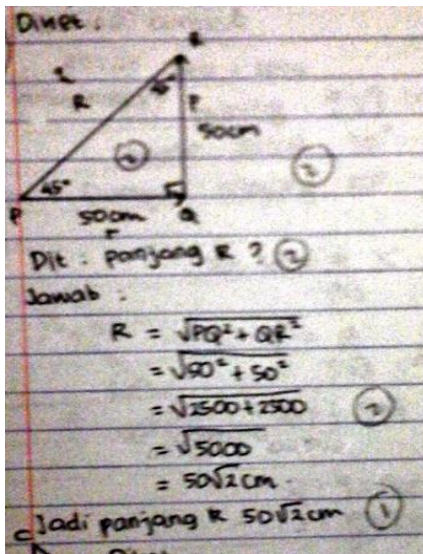 Diket :
R
2
R
45°
P
50cm
2
2
P
45°
50cm
Q
r
Dit : panjang R ? 2
Jawab :
R = √PQ² + QR²
= √50² + 50²
= √2500 + 2500 2
= √5000
= 50√2 cm.
c Jadi panjang R 50√2 cm 1